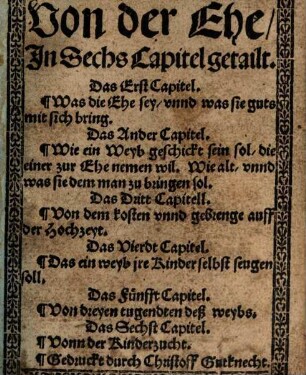 Von der Ehe/
In Sechs Capitel getailt.
Das Erst Capitel.
¶ Was die Ehe sey/ vnnd was sie guts
mit sich bring.
Das Ander Capitel.
¶ Wie ein Weyb geschickt sein sol/ die
einer zur Ehe nemen wil. Wie alt/ vnnd
was sie dem man zu bringen sol.
Das Dritt Capitell.
¶ Von dem kosten vnnd gebrenge auff
der Hochzeyt.
Das Vierdt Capitel.
¶ Das ein weyb jre Kinder selbst seugen
soll.
Das Fünfft Capitel.
¶ Von dreyen tugendten deß weybs.
Das Sechst Capitel.
¶ Vonn der Kinderzucht.
¶ Gedruckt durch Christoff Gutknecht.